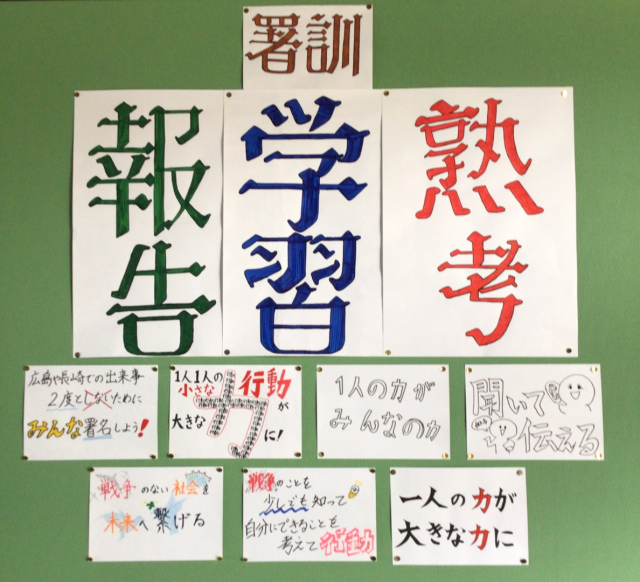 署訓
熟考
学習
報告
広島や長崎での出来事
2度としないために
みんな署名しよう!
1人1人の
小さな行動が
大きな力に!
1人の力が
みんなの力
聞いて
伝える
戦争のない社会を
未来へ繋げる
戦争のことを
少しでも知って
自分にできることを
考えて行動
一人の力が
大きな力に